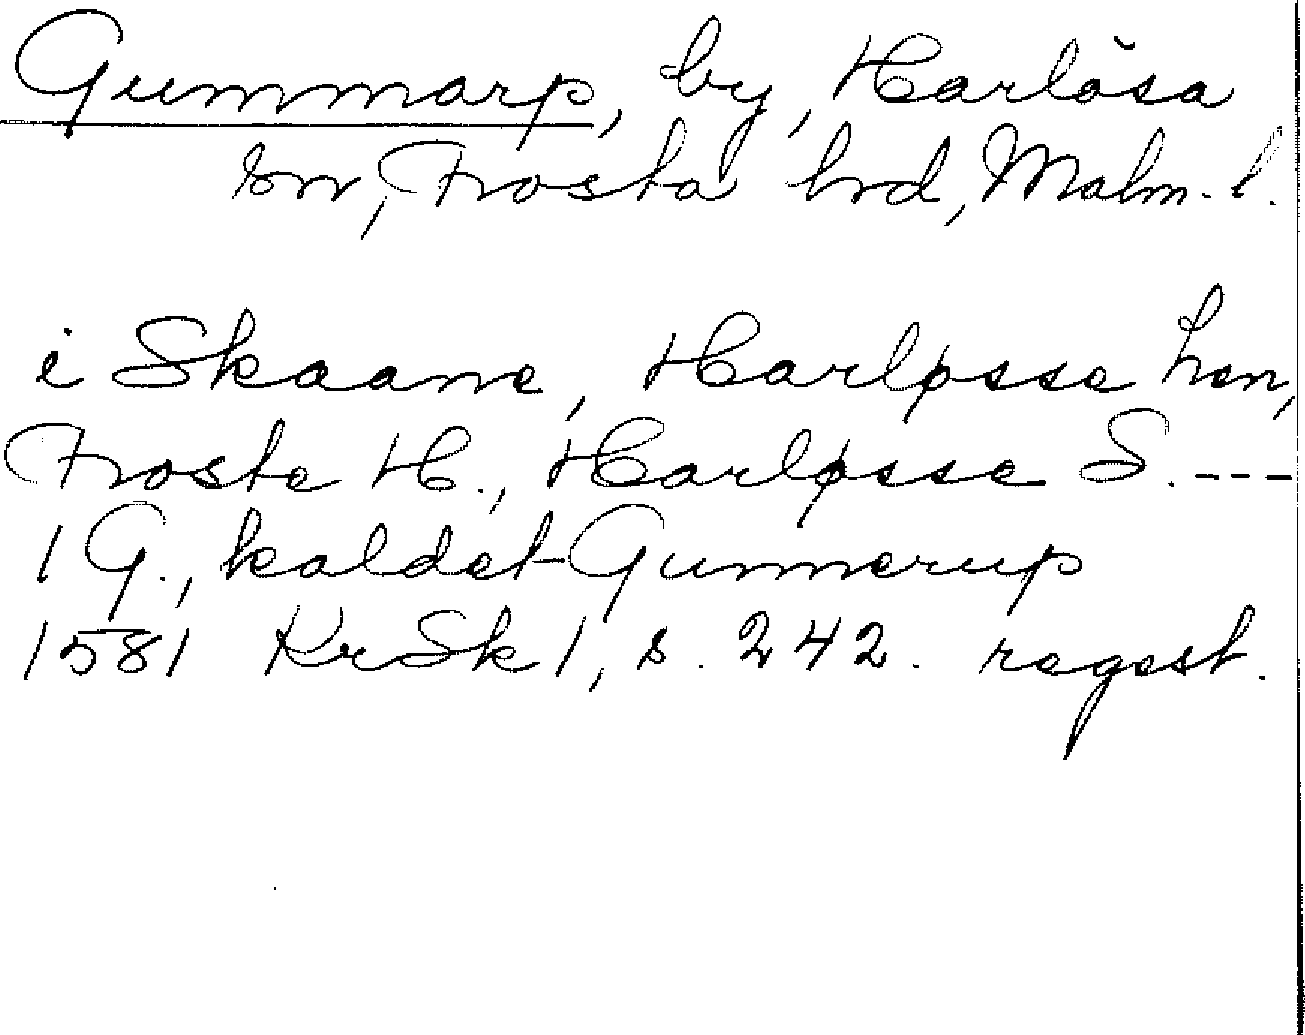 Gummarp, by, Harlösa
sn, Frosta hrd, Malm. l.
i Skaane, Harløsse Len,
Froste H., Harløsse S. ---
1 G., kaldet Gunnerup
1581 KrSk 1, s. 242. regest.